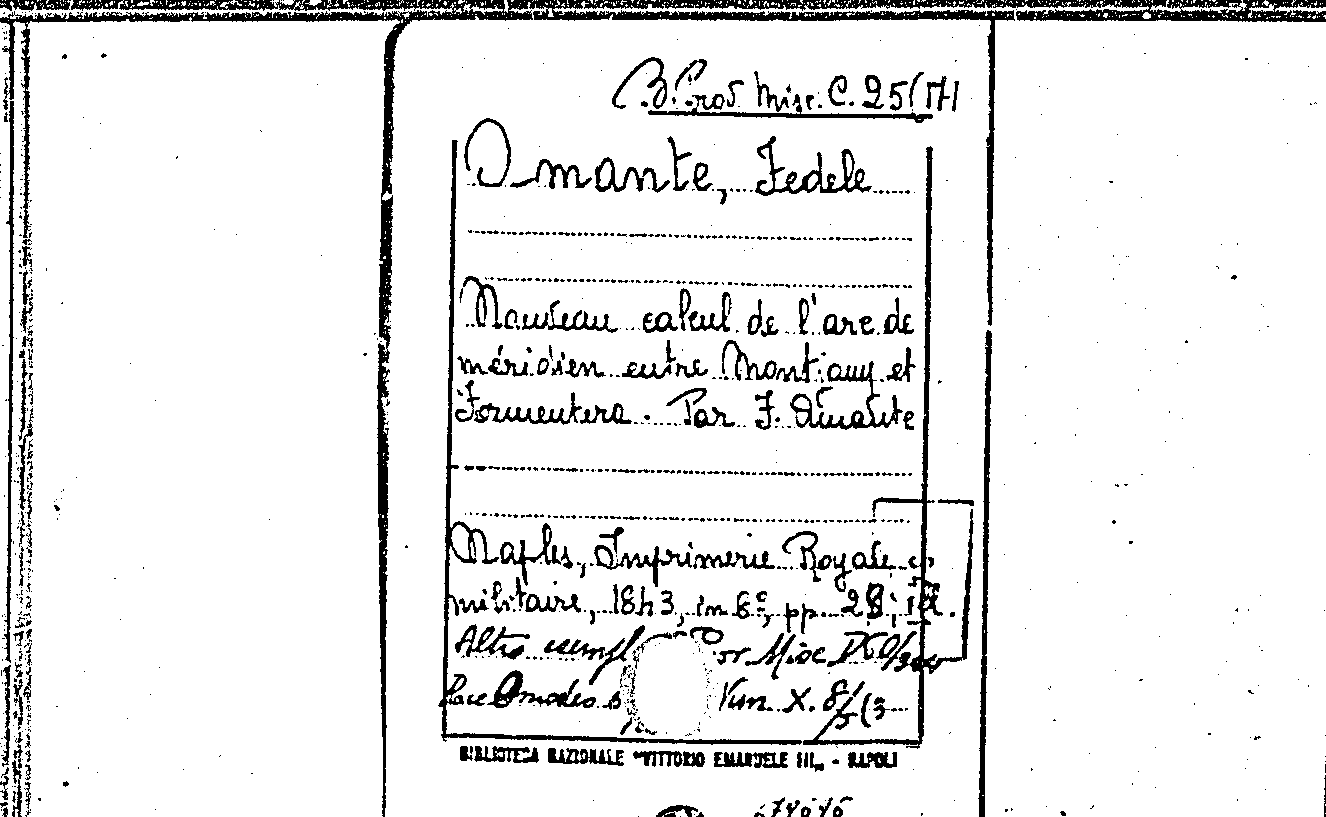 B. Prov. Misc. C. 25(17
Omante, Fedele
Nouveau calcul de l'arc de
méridien entre Montjouy et
Formentera. Par F. Amante
Naples, Imprimerie Royale
militaire, 1843, in 8º, pp. 28,
Altro Misc
X. 8/5(3
BIBLIOTECA NAZIONALE "VITTORIO EMANUELE III„ - NAPOLI